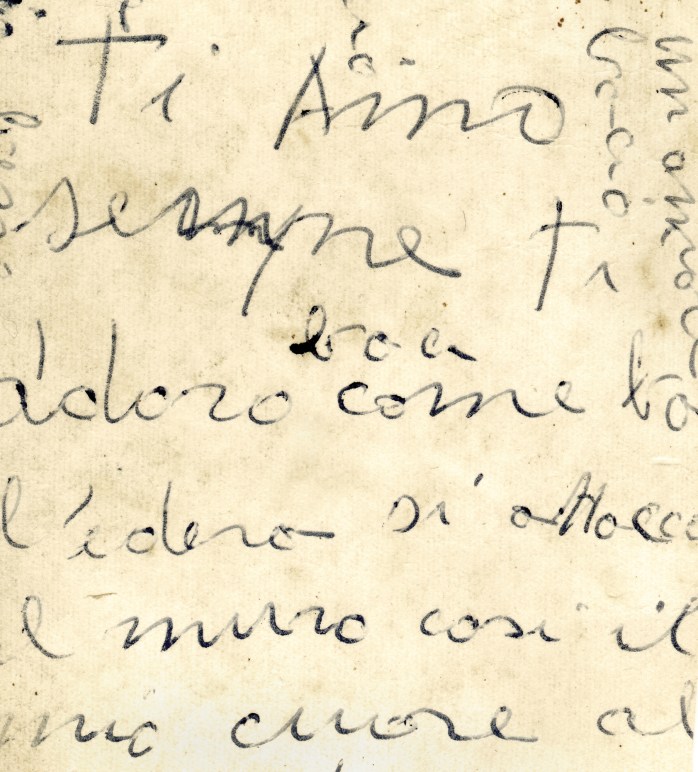 ti Amo
sempre ti
adoro come
l'edera si attacca
al muro così il
mio cuore al